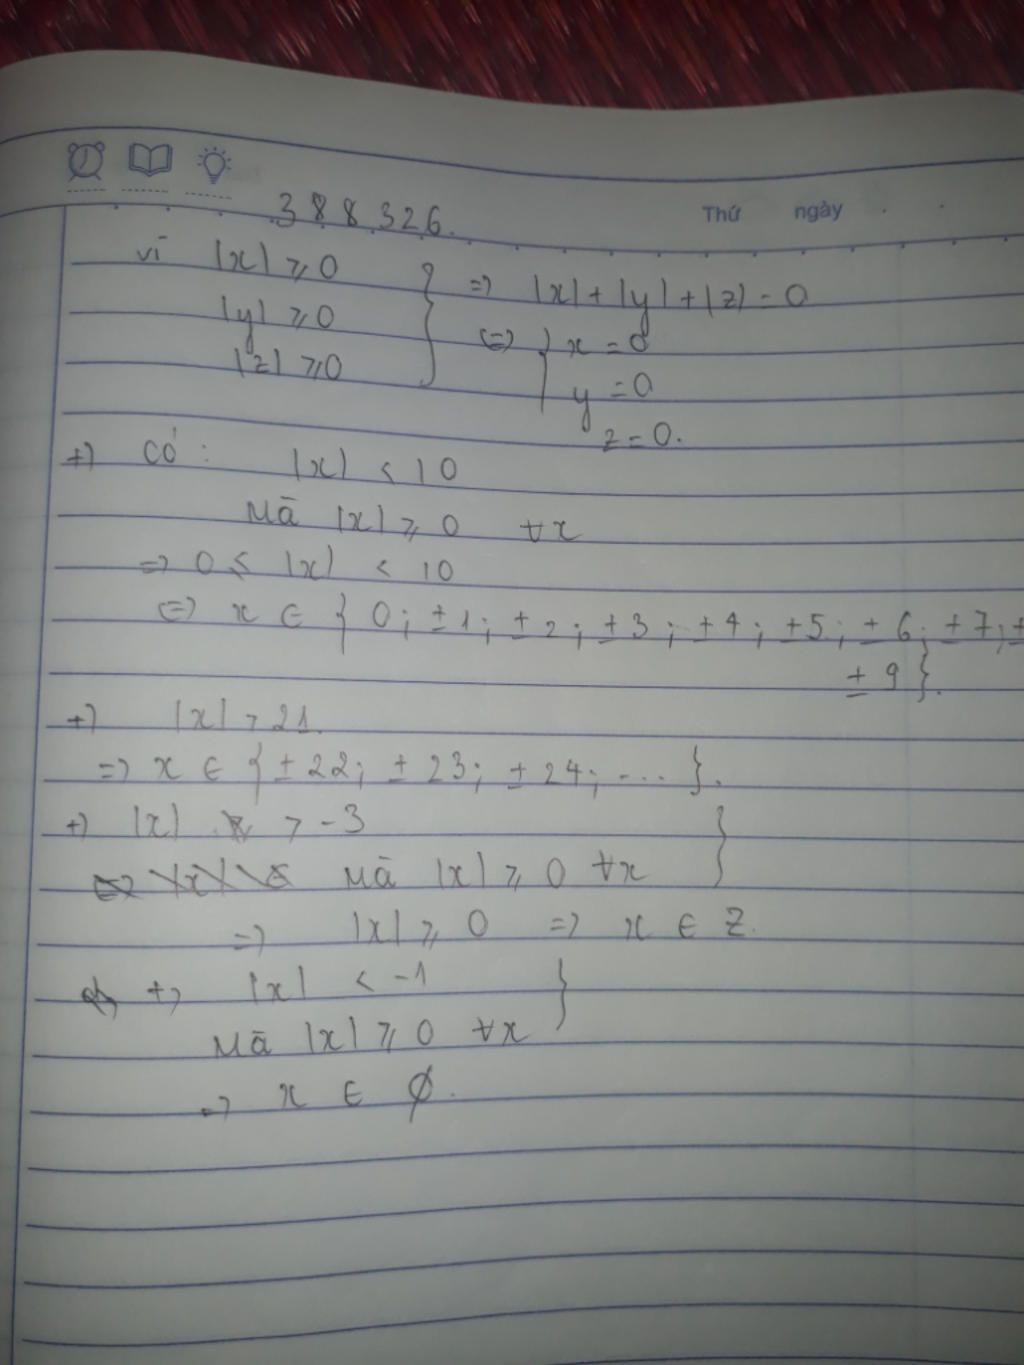 Thứ ngày
388326.
vì |x| ⩾ 0
|y| ⩾ 0
|z| ⩾ 0
} => |x| + |y| + |z| = 0
<=> { x = 0
y = 0
z = 0.
+) Có: |x| < 10
Mà |x| ⩾ 0 ∀x
=> 0 ⩽ |x| < 10
<=> x ∈ { 0; ±1; ±2; ±3; ±4; ±5; ±6; ±7; ±
±9}.
+) |x| > 21.
=> x ∈ {±22; ±23; ±24; ... }.
+) |x| > -3 }
Mà |x| ⩾ 0 ∀x
=> |x| ⩾ 0 => x ∈ Z.
+) |x| < -1 }
Mà |x| ⩾ 0 ∀x
=> x ∈ ∅.